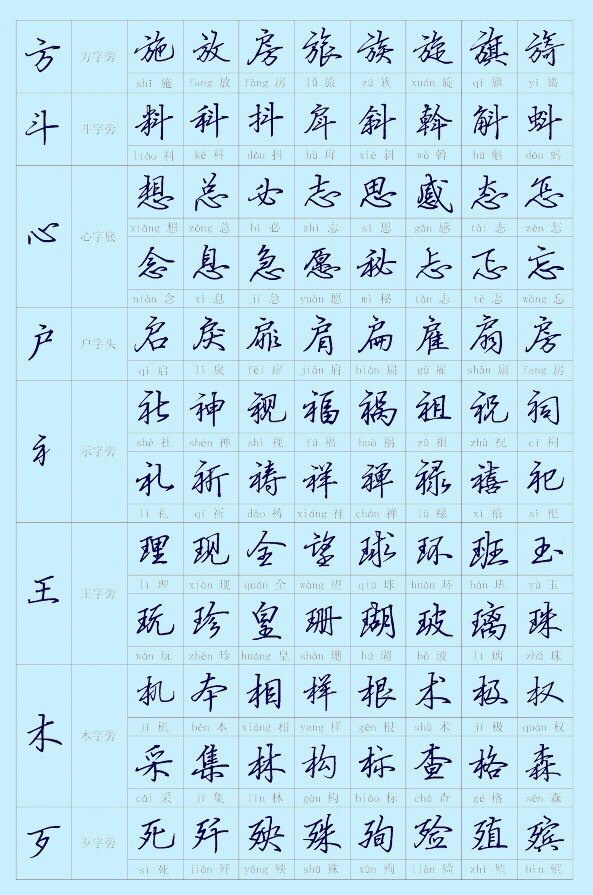 方 方字旁 施 放 房 旅 族 旋 旗 旖
shī 施 fàng 放 fáng 房 lǚ 旅 zú 族 xuán 旋 qí 旗 yǐ 旖
斗 斗字旁 料 科 抖 戽 斜 斡 斛 蚪
liào 料 kē 科 dǒu 抖 hù 戽 xié 斜 wò 斡 hú 斛 dǒu 蚪
心 心字底 想 总 必 志 思 感 态 怎
xiǎng 想 zǒng 总 bì 必 zhì 志 sī 思 gǎn 感 tài 态 zěn 怎
念 息 急 愿 秘 忐 忑 忘
niàn 念 xī 息 jí 急 yuàn 愿 mì 秘 tǎn 忐 tè 忑 wàng 忘
户 户字头 启 戾 扉 肩 扁 雇 扇 房
qǐ 启 lì 戾 fēi 扉 jiān 肩 biǎn 扁 gù 雇 shàn 扇 fáng 房
礻 示字旁 社 神 视 福 祸 祖 祝 祠
shè 社 shén 神 shì 视 fú 福 huò 祸 zǔ 祖 zhù 祝 cí 祠
礼 祈 祷 祥 禅 禄 禧 祀
lǐ 礼 qí 祈 dǎo 祷 xiáng 祥 chán 禅 lù 禄 xǐ 禧 sì 祀
王 王字旁 理 现 全 望 球 环 班 玉
lǐ 理 xiàn 现 quán 全 wàng 望 qiú 球 huán 环 bān 班 yù 玉
玩 珍 皇 珊 瑚 玻 璃 珠
wán 玩 zhēn 珍 huáng 皇 shān 珊 hú 瑚 bō 玻 lí 璃 zhū 珠
木 木字旁 机 本 相 样 根 术 极 权
jī 机 běn 本 xiāng 相 yàng 样 gēn 根 shù 术 jí 极 quán 权
采 集 林 构 标 查 格 森
cǎi 采 jí 集 lín 林 gòu 构 biāo 标 chá 查 gé 格 sēn 森
歹 歹字旁 死 歼 殃 殊 殉 殓 殖 殡
sǐ 死 jiān 歼 yāng 殃 shū 殊 xùn 殉 liàn 殓 zhí 殖 bìn 殡